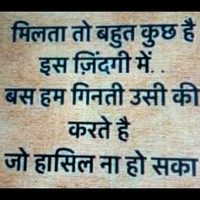 मिलता तो बहुत कुछ है
इस ज़िंदगी में. .
बस हम गिनती उसी की
करते है
जो हासिल ना हो सका